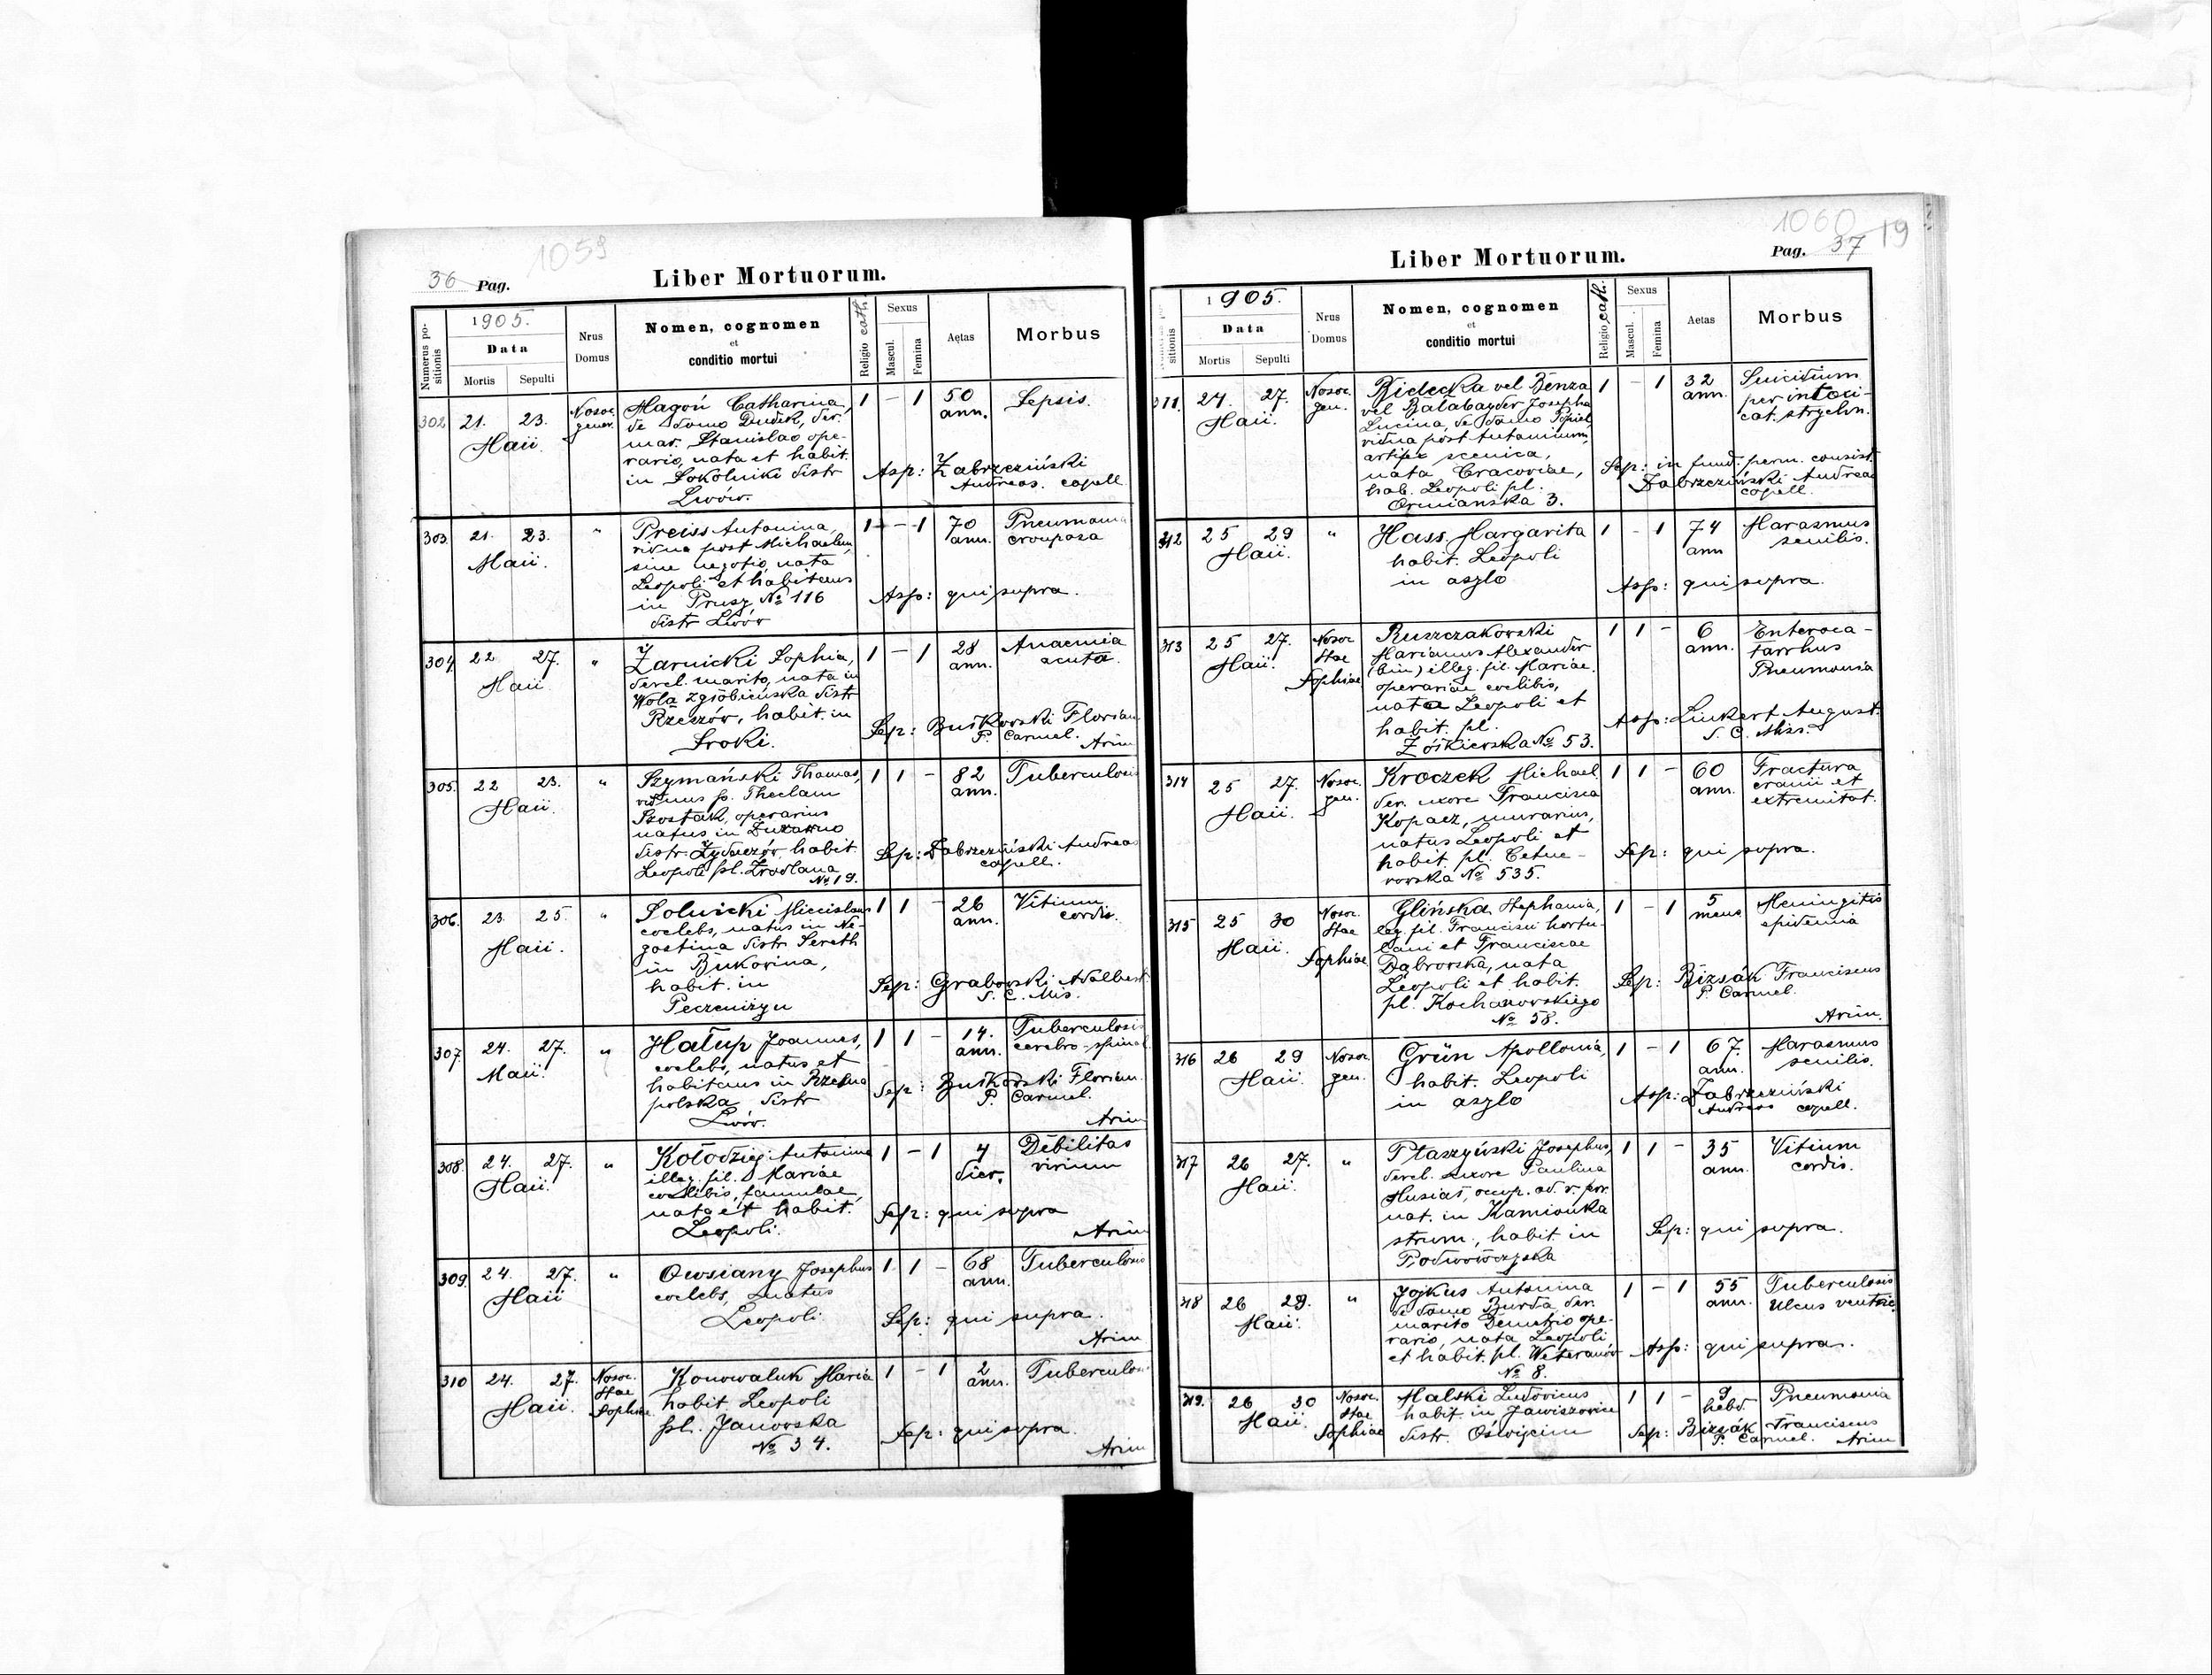 36 Pag.
1059
Liber Mortuorum.
Numerus po-
sitionis
1905.
Data
Mortis
Sepulti
Nrus
Domus
Nomen, cognomen
et
conditio mortui
Religio cath.
Sexus
Mascul.
Femina
Aetas
Morbus
302 21. 23. Maii Nosoc. gener.
Magoń Catharina,
de domo Dudek, der.
mar. Stanislao ope-
rario, nata et habit.
in Sokolniki distr
Lwów.
1 - 1 50 ann. Sepsis.
Asp: Zabrzeziński
Andreas. capell.
303. 21. 23. Maii. "
Preiss Antonina,
vidua post Michaelem,
sine negotio, nata
Leopoli et habitans
in Prusy, № 116
distr Lwów
1 - 1 70 ann. Pneumonia
crouposa
Asp: qui supra.
304. 22 27. Maii "
Żarnicki Sophia,
derel. marito, nata in
Wola zgłobieńska distr
Rzeszów, habit. in
Sroki.
1 - 1 28 ann. Anaemia
acuta.
Sep: Buśkowski Florian
P. Carmel.
305. 22 23. Maii "
Szymański Thomas,
viduus p. Theclam
Szostak, operarius
natus in Żurawno
distr. Żydaczów, habit.
Leopoli pl. Źrodlana
№ 19.
1 1 - 82 ann. Tuberculosis
Sep: Zabrzeziński Andreas
capell.
306. 23. 25. Maii. "
Solnicki Miecislaus
coelebs, natus in Ne-
gostina distr Sereth
in Bukovina,
habit. in
Peczeniżyn
1 1 - 26 ann. Vitium
cordis.
Sep: Grabowski Adalbert
S. C. Mis.
307 24. 27. Maii. "
Hałup Joannes,
coelebs, natus et
habitans in Rzesna
polska distr
Lwów.
1 1 - 14. ann. Tuberculosis
cerebro-spinal.
Sep: Buśkowski Florian.
P. Carmel.
308. 24. 27. Maii. "
Kołodziej Antonina
illeg. fil. Mariae
coelibis, famulae,
nata et habit.
Leopoli.
1 - 1 4 dier. Debilitas
virium
Sep: qui supra
309. 24. 27. Maii "
Owsiany Josephus
coelebs, natus
Leopoli.
1 1 - 68 ann. Tuberculosis
Sep: qui supra.
310 24. 27. Maii. Nosoc. Stae Sophiae
Konowaluk Maria
habit. Leopoli
pl. Janowska
№ 34.
1 - 1 2 ann. Tuberculosis
Sep: qui supra.
1060 19
Pag. 37
Liber Mortuorum.
sitionis
1905.
Data
Mortis
Sepulti
Nrus
Domus
Nomen, cognomen
et
conditio mortui
Religio cath.
Sexus
Mascul.
Femina
Aetas
Morbus
311. 24. 27. Maii. Nosoc. gen.
Bielecka vel Benza
vel Balabayder Josepha
Lucina, de domo Popiel,
vidua post Antonium,
artifex scenica,
nata Cracoviae,
hab. Leopoli pl.
Ormianska 3.
1 - 1 32 ann. Suicidium
per intoxi-
cat. strychn.
Sep: in fund. perm. consist.
Zabrzeziński Andreas
capell.
312 25 29 Maii. "
Hass Margarita
habit. Leopoli
in asylo
1 - 1 74 ann Marasmus
senilis.
Asp: qui supra.
313 25 27. Maii. Nosoc Stae Sophiae
Ruszczakowski
Marianus Alexander
(bin) illeg. fil. Mariae
operariae coelibis,
nata Leopoli et
habit. pl.
Żółkiewska № 53.
1 1 - 6 ann. Enteroca-
tarrhus
Pneumonia
Asp: Linkert August.
S. C. Miss.
314 25 27. Maii. Nosoc. gen.
Kroczek Michael
der. uxore Francisca
Kopacz, murarius,
natus Leopoli et
habit. pl. Cetne-
rowska № 535.
1 1 - 60 ann. Fractura
cranii et
extremitat.
Sep: qui supra.
315 25 30 Maii. Nosoc. Stae Sophiae
Glińska Stephania,
leg. fil. Francisci hortu-
lani et Franciscae
Dąbrowska, nata
Leopoli et habit.
pl. Kochanowskiego
№ 58.
1 - 1 5 mens Meningitis
epidemia
Sep: Bizsák Franciscus
P. Carmel.
316 26 29 Maii. Nosoc. gen.
Grün Apollonia,
habit. Leopoli
in asylo
1 - 1 67. ann. Marasmus
senilis.
Asp: Zabrzeziński
Andreas capell.
317 26 27. Maii. "
Ptaszyński Josephus,
derel. uxore Paulina
Musiał, occup. ad. v. fer.
nat. in Kamionka
strum., habit in
Podwołoczyska
1 1 - 35 ann. Vitium
cordis.
Sep: qui supra.
318 26 29. Maii. "
Jojkus Antonina
de domo Burda der.
marito Demetrio ope-
rario, nata Leopoli,
et habit. pl. Weteranów
№ 8.
1 - 1 55 ann. Tuberculosis
Ulcus ventric.
Asp: qui supra.
319. 26 30 Maii. Nosoc. Stae Sophiae
Malski Ludovicus
habit. in Jawiszowice
distr. Oświęcim
1 1 - 9 hebd. Pneumonia
Sep: Bizsák Franciscus
P. Carmel.